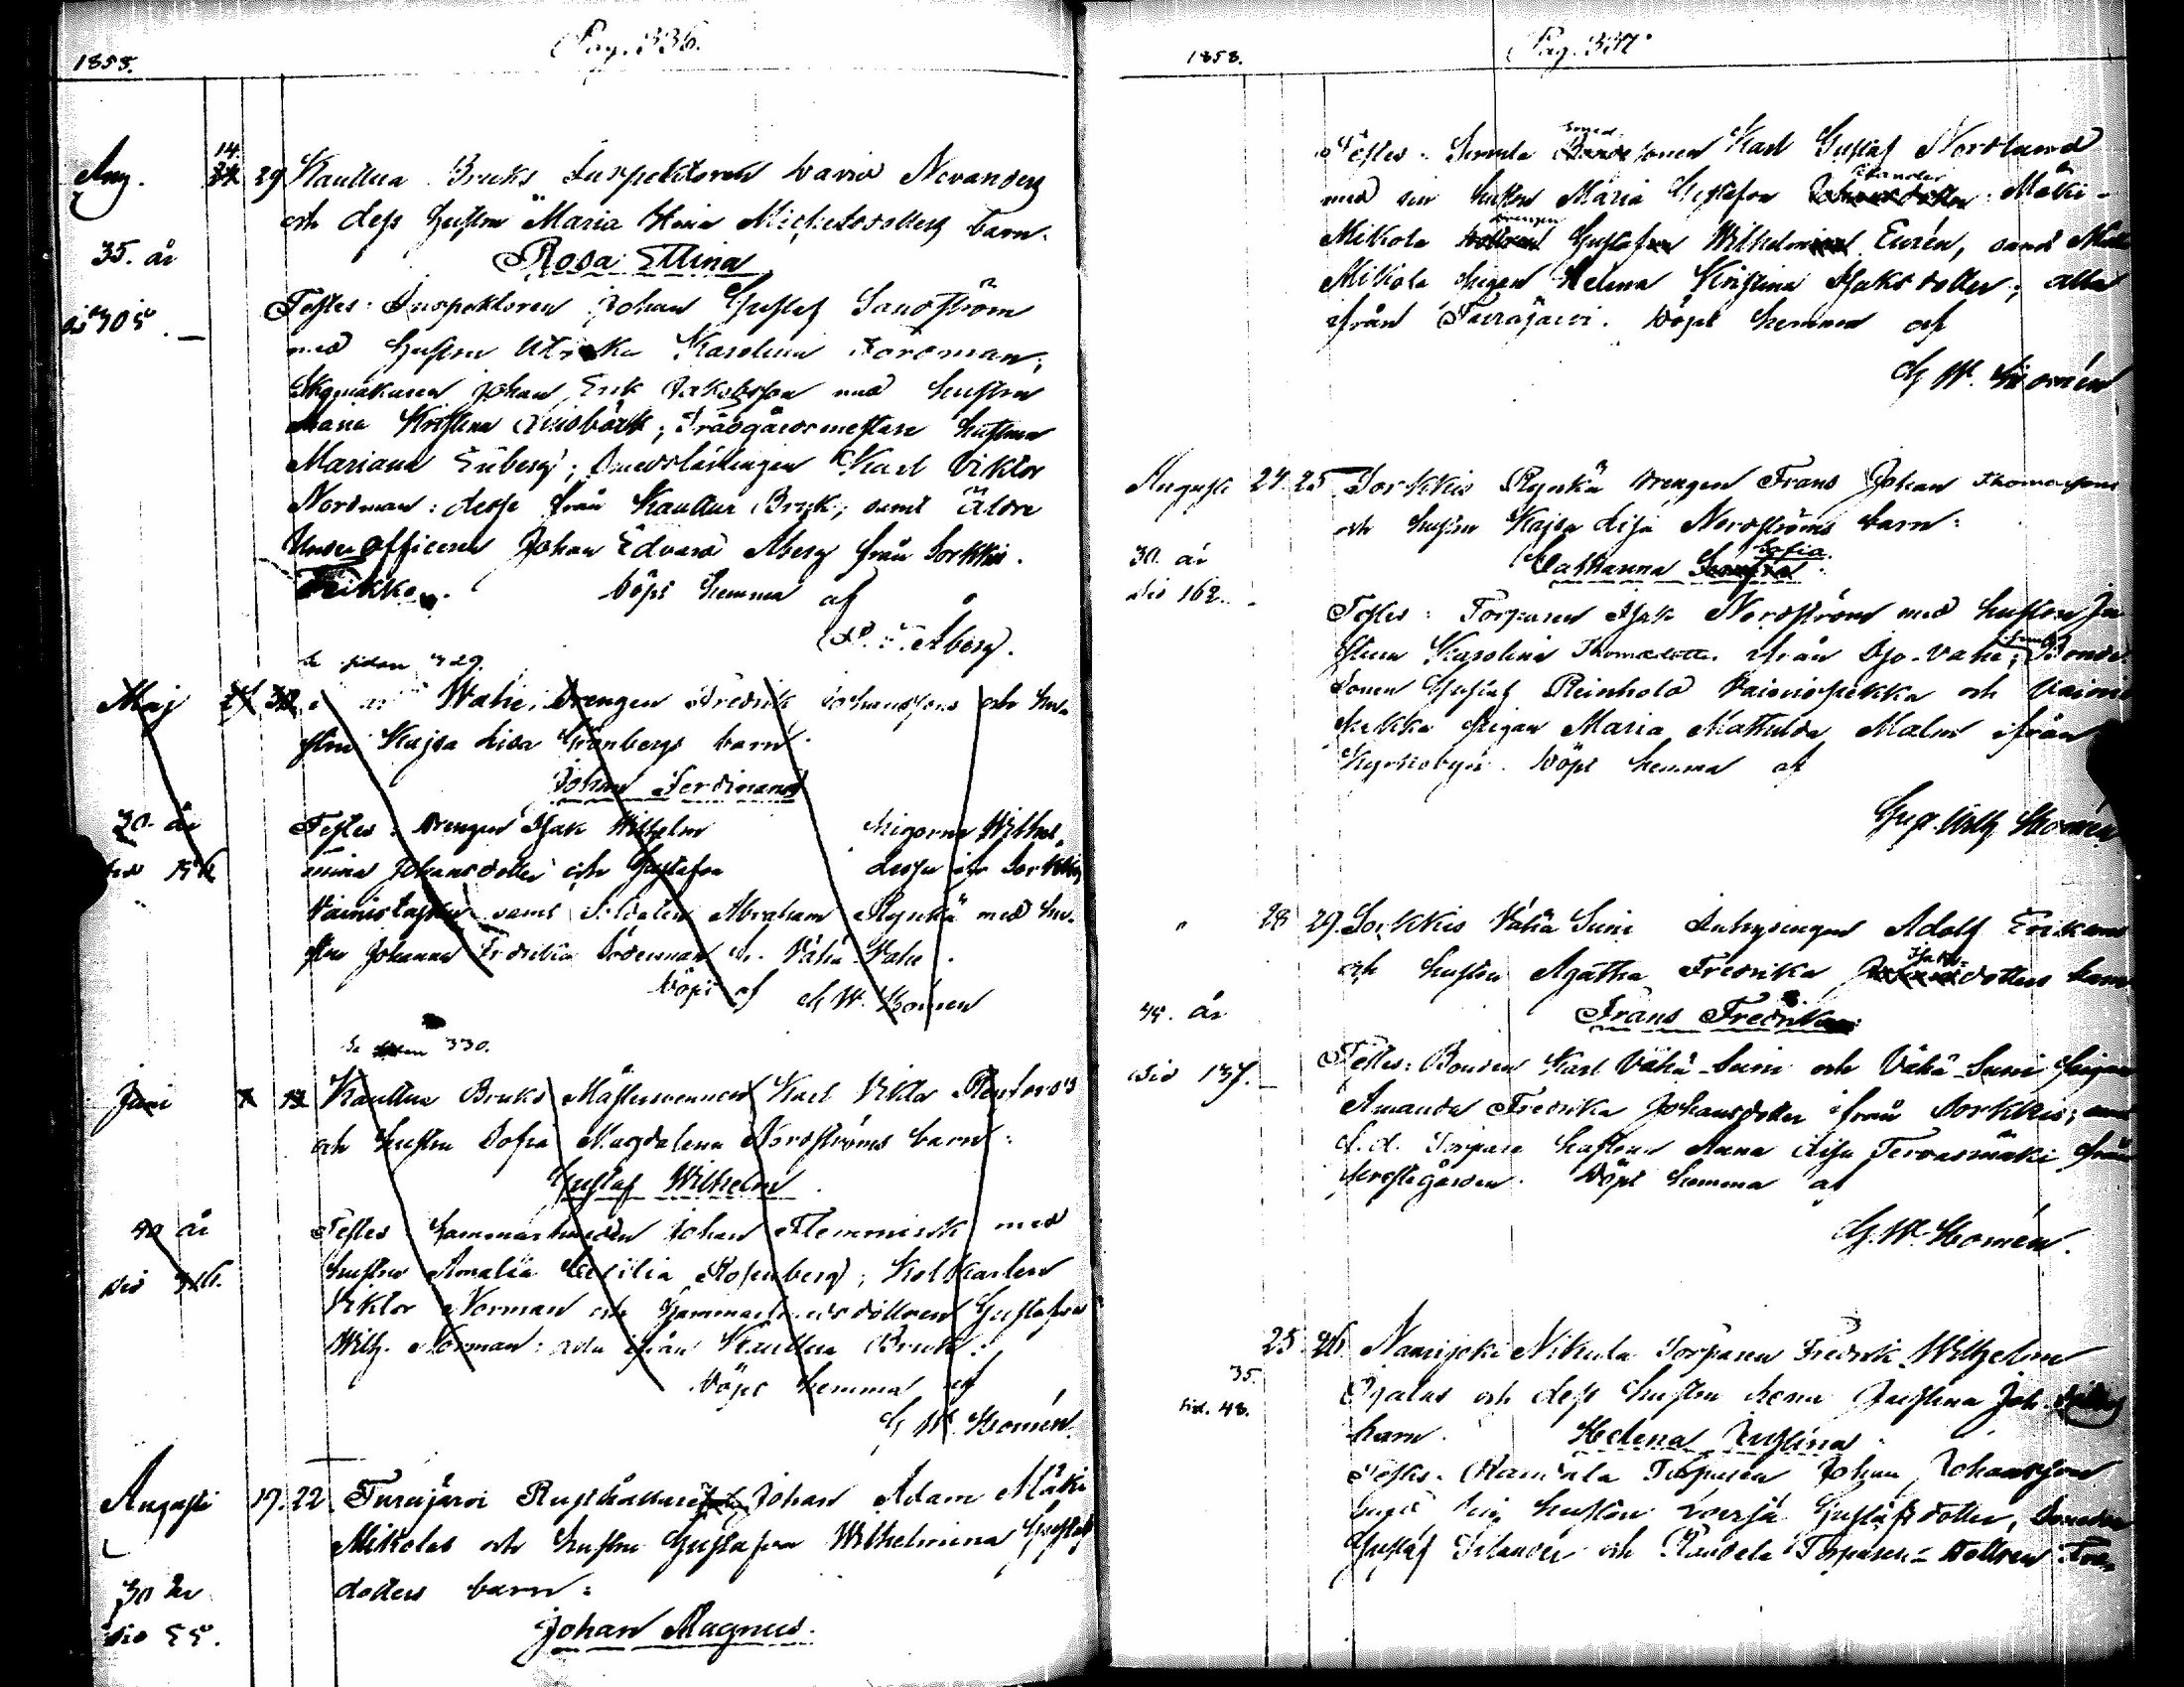 Pag. 336.
1858.
Aug. 14. 29 Kauttua Bruks Inspektoren David Novanders
och dess hustru Maria Stina Michelsdotters barn.
35. år
Rosa Ellina
sid 305.
Testes: Inspektoren Johan Gustaf Sandström
med hustru Ulrika Karolina Fordman;
Skomakaren Johan Erik Jakobsson med hustru
Maria Kristina; Trädgårdsmestare hustrun
Mariana Enberg; Smedslärlingen Karl Viktor
Nordman: desse från Kauttua Bruk; samt Äldre
Underofficeren Johan Edvard Åberg från Sorkkis.
Frikko. Döpt hemma af
Åberg.
Se sidan 329.
Maj Wahe. Drengen Fredrik Johanssons och hu-
stru Kajsa Lisa Grönbergs barn.
Johan Ferdinand
30 år
Testes: Drengen Isak Wilhelm Pigorna Wilhel-
mina Johansdotter och Gustafva dessa ifr Sorkkis
samt Soldaten Abraham Rynkä med hu-
stru Johanna Fredrika Söderman fr. Vähä-Vahe.
Döpt af G W. Homén
Se sidan 330.
Juni Kauttua Bruks Mästersvennen Karl Viktor
och hustru Sofia Magdalena Nordströms barn:
Gustaf Wilhelm
40 år
Testes: Hammarsmeden Johan Flemmink med
sid
hustru Amalia Cecilia Rosenberg; Kolkarlen
Viktor Norman och Hammarsmedsdottren Gustafva
Wilh. Norman: alla ifrån Kauttua Bruk.
Döpt hemma af
G W. Homén.
Augusti 17. 22. Turajärvi Rusthållare Johan Adam Mäki
Mikolas och hustru Gustafva Wilhelmina Gustafs
dotters barn:
30 år
Johan Magnus.
sid 55.
1858.
Pag. 337.
Testes: sonen Karl Gustaf Nordlund
med sin hustru Maria Gustafva Mäki-
Mikola drengen Gustaf Wilhelm Eurén, samt Mäki
Mikola pigan Helena Kristina Isaksdotter; alla
ifrån Turajärvi. Döpt hemma af
G W. Homén
Augusti 24. 25 Sorkkis Rynkä drengen Frans Johan Thomassons
och hustru Kajsa Lisa Nordströms barn:
30. år
Katharina Sofia
sid 162.
Testes: Torparen Isak Nordström med hustru Ju-
stina Karolina Thomasdotter ifrån Iso-Vahe; Bonde
sonen Gustaf Reinhold Vainionpekka och Vainion
pekka pigan Maria Mathilda Malm ifrån
Kyrkobyn. Döpt hemma af
Gust. Wilh Homén
" 28 29. Sorkkis Vähä Suni Inhysingen Adolf Erikssons
och hustru Agatha Fredrika Isaksdotters barn
44. år
Frans Fredrik
sid 137.
Testes: Bonden Karl Vähä-Suni och Vähä-Suni pigan
Amanda Fredrika Johansdotter ifrån Sorkkis;
f.d. Torpare hustrun Anna Lisa Tervasmäki från
Prestegården. Döpt hemma af
G. W. Homén.
25 26 Naarijoki Nikula Torparen Fredrik Wilhelm
35.
Ojalas och dess hustru Lena Justina Joh.
sid. 48.
barn. Helena Justina
Testes: Torparen Johan Johansson
med sin hustru Gustafsdotter,
Gustaf Silander och Torpare-dottren